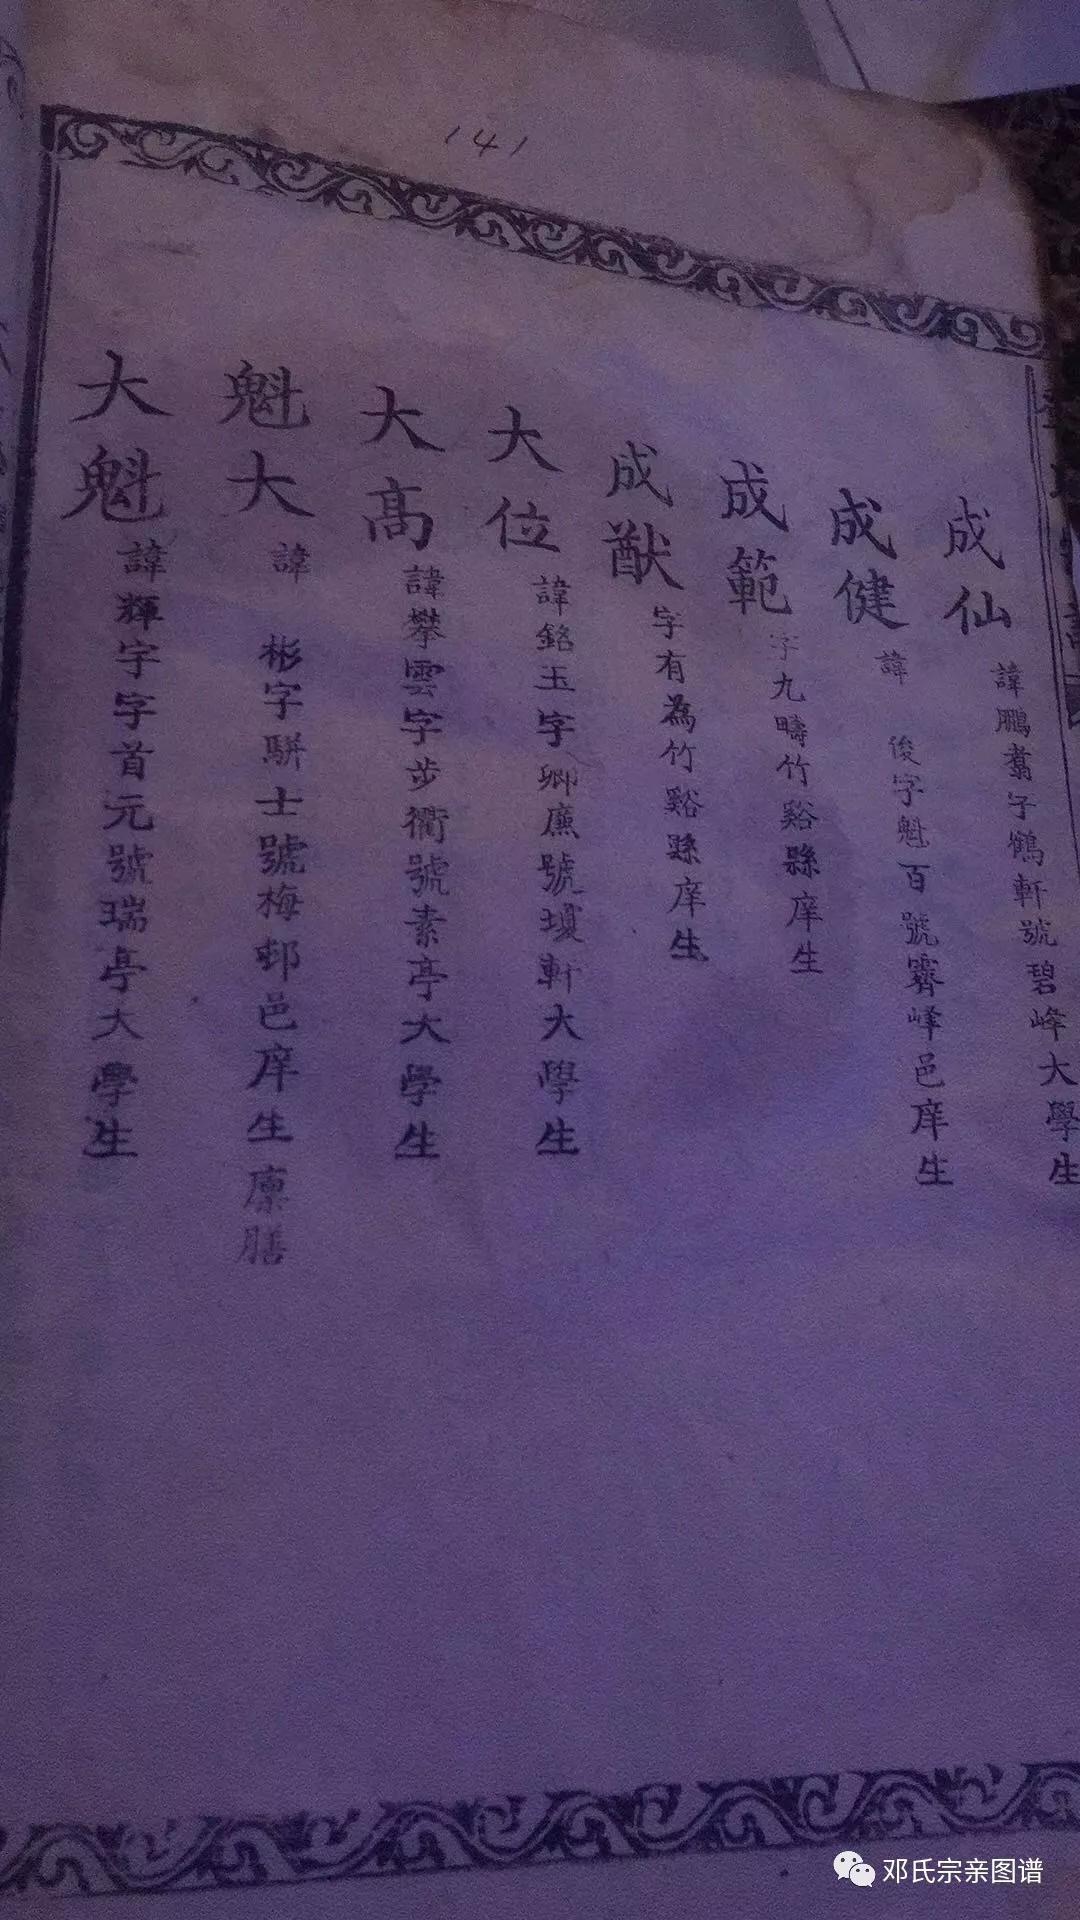 141
成仙 諱鵬翥字鶴軒號碧峰大學生
成健 諱俊字魁百號霽峰邑庠生
成範 字九疇竹谿縣庠生
成猷 字有為竹谿縣庠生
大位 諱銘玉字卿廉號瓊軒大學生
大高 諱攀雲字步衢號素亭大學生
魁大 諱彬字駢士號梅邨邑庠生廪膳
大魁 諱輝字字首元號瑞亭大學生
邓氏宗亲图谱